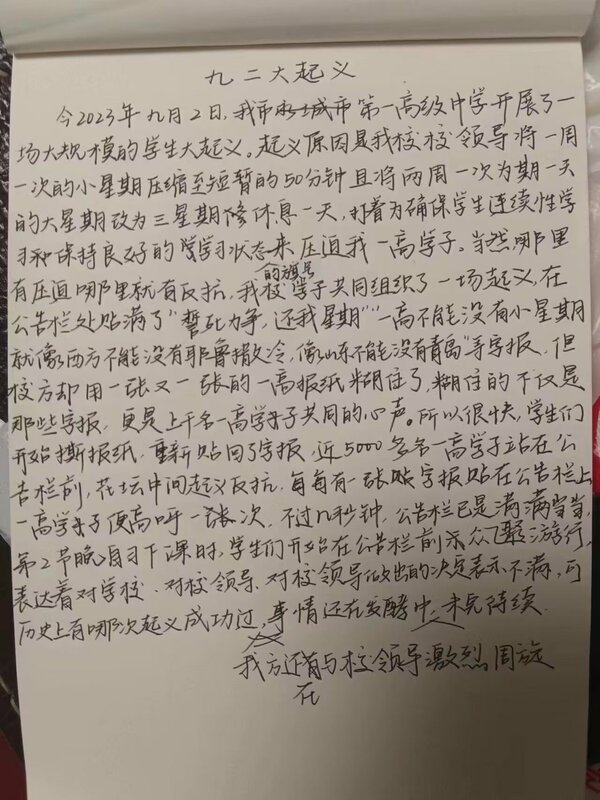 九二大起义
今2023年九月2日,我市永城市第一高级中学开展了一
场大规模的学生大起义。起义原因是我校校领导将一周
一次的小星期压缩至短暂的50分钟且将两周一次为期一天
的大星期改为三星期修休息一天,打着为确保学生连续性学
习和保持良好的学学习状态来压迫我一高学子。当然哪里
的旗号
有压迫哪里就有反抗,我校学子共同组织了一场起义,在
公告栏处贴满了“誓死力争,还我星期”“一高不能没有小星期
就像西方不能没有耶鲁撒冷,像山东不能没有青岛”等字报,但
校方却用一张又一张的一高报纸糊住了,糊住的不仅是
那些字报,更是上千名一高学子共同的心声。所以很快,学生们
开始撕报纸,重新贴回了字报,近5000多名一高学子站在公
告栏前,花坛中间起义反抗,每每有一张贴字报贴在公告栏上
一高学子便高呼一张次,不过几秒钟,公告栏已是满满当当,
第2节晚自习下课时,学生们开始在公告栏前示众游行,
表达着对学校、对校领导、对校领导做出的决定表示不满,可
历史上有哪次起义成功过,事情还在发酵中,未完待续.
我方还有与校领导激烈周旋
在